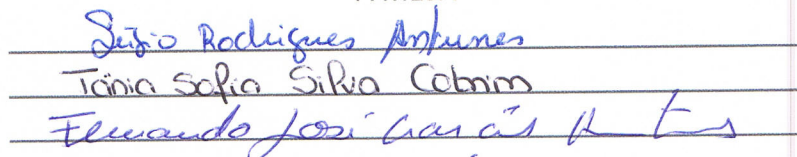 Sérgio Rodrigues Antunes
Tânia Sofia Silva Cabrim
Fernando José